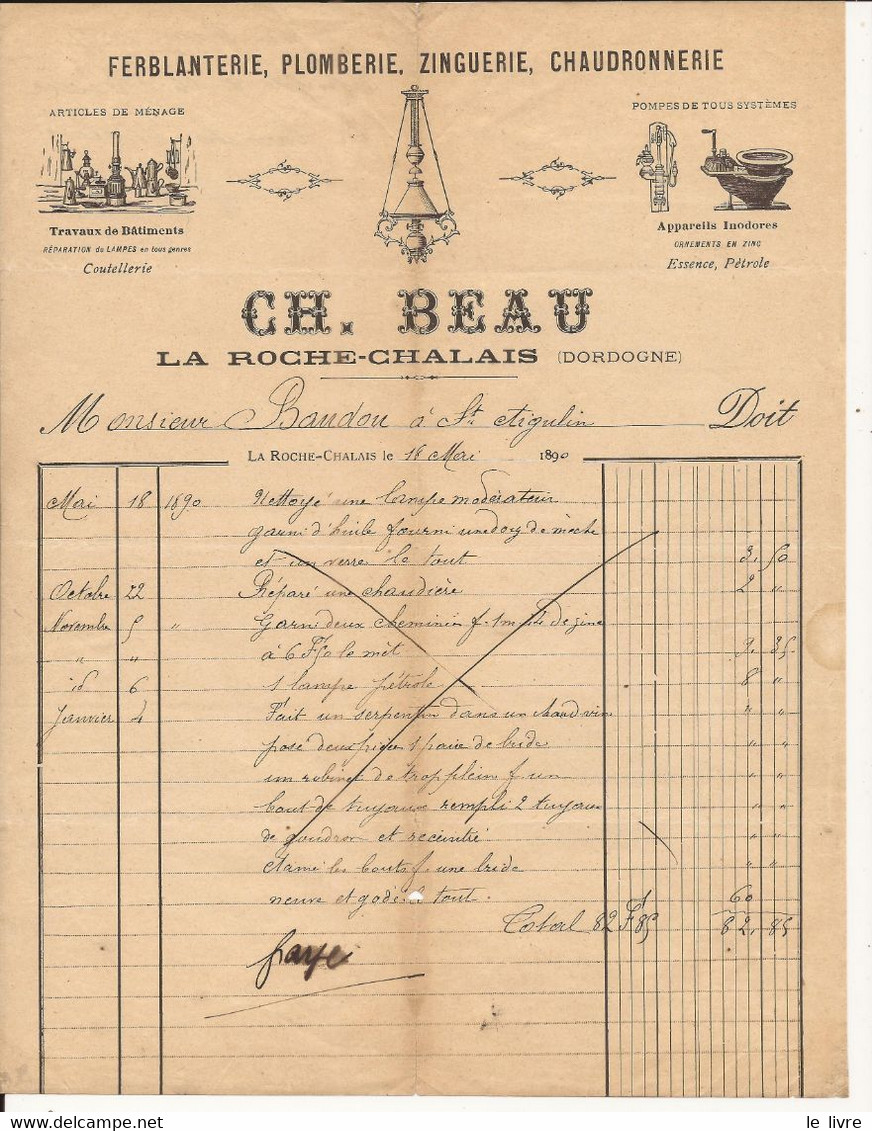 FERBLANTERIE, PLOMBERIE, ZINGUERIE, CHAUDRONNERIE
ARTICLES DE MÉNAGE
POMPES DE TOUS SYSTÈMES
Travaux de Bâtiments
RÉPARATION de LAMPES en tous genres
Coutellerie
Appareils Inodores
ORNEMENTS EN ZINC
Essence, Pétrole
CH. BEAU
LA ROCHE-CHALAIS (DORDOGNE)
Monsieur Baudou à St. Aigulin Doit
LA ROCHE-CHALAIS le 18 Mai 1890
Mai 18 1890 Nettoyé une lampe modérateur
garni d'huile fourni une de mèche
et un verre le tout 3,50
Octobre 22 Réparé une chaudière 2 "
Novembre 5 " Garni deux cheminés f. 1m de zinc
" " à 6 F50 le mèt 9. 35
id 6 1 lampe pétrole 8 "
Janvier 4 Fait un serpentin dans un chaud vin " "
posé deux 1 paire de bride " "
un robinet de trop plein f un " "
bout de tuyaux rempli 2 tuyaux " "
de goudron et receintré " "
étamé les bouts f. une bride " "
neuve et le tout. 60
Total 82 F 85 82,85
paye
le livre